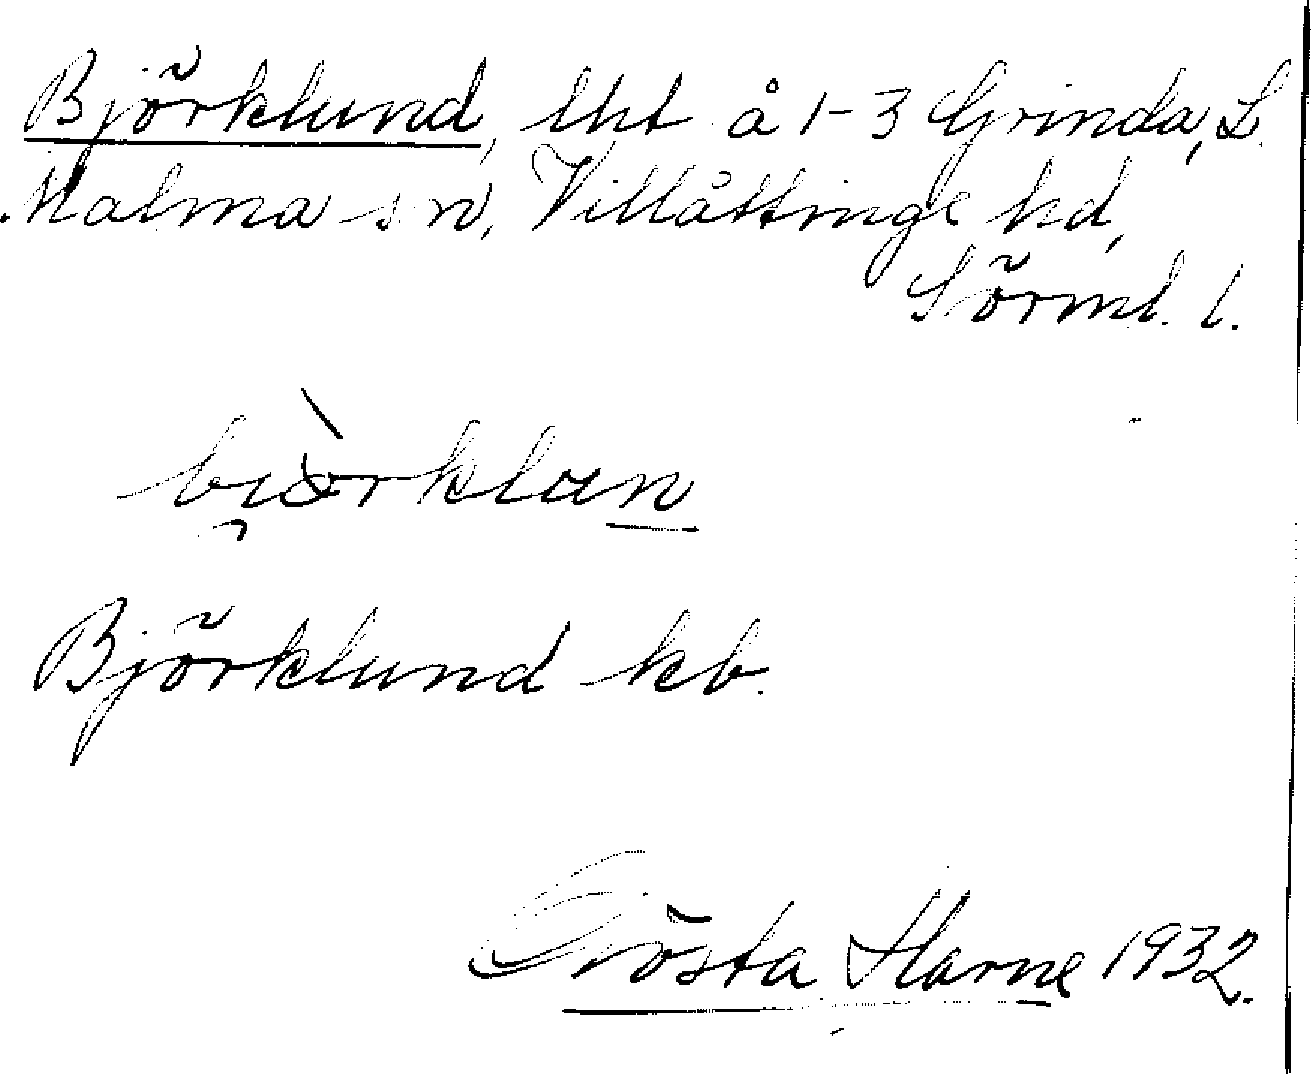 Björklund, lht å 1-3 Grinda, L.
Malma sn, Villåttinge hd,
Sörml. l.
Björklund kb.
Gösta Harne 1932.